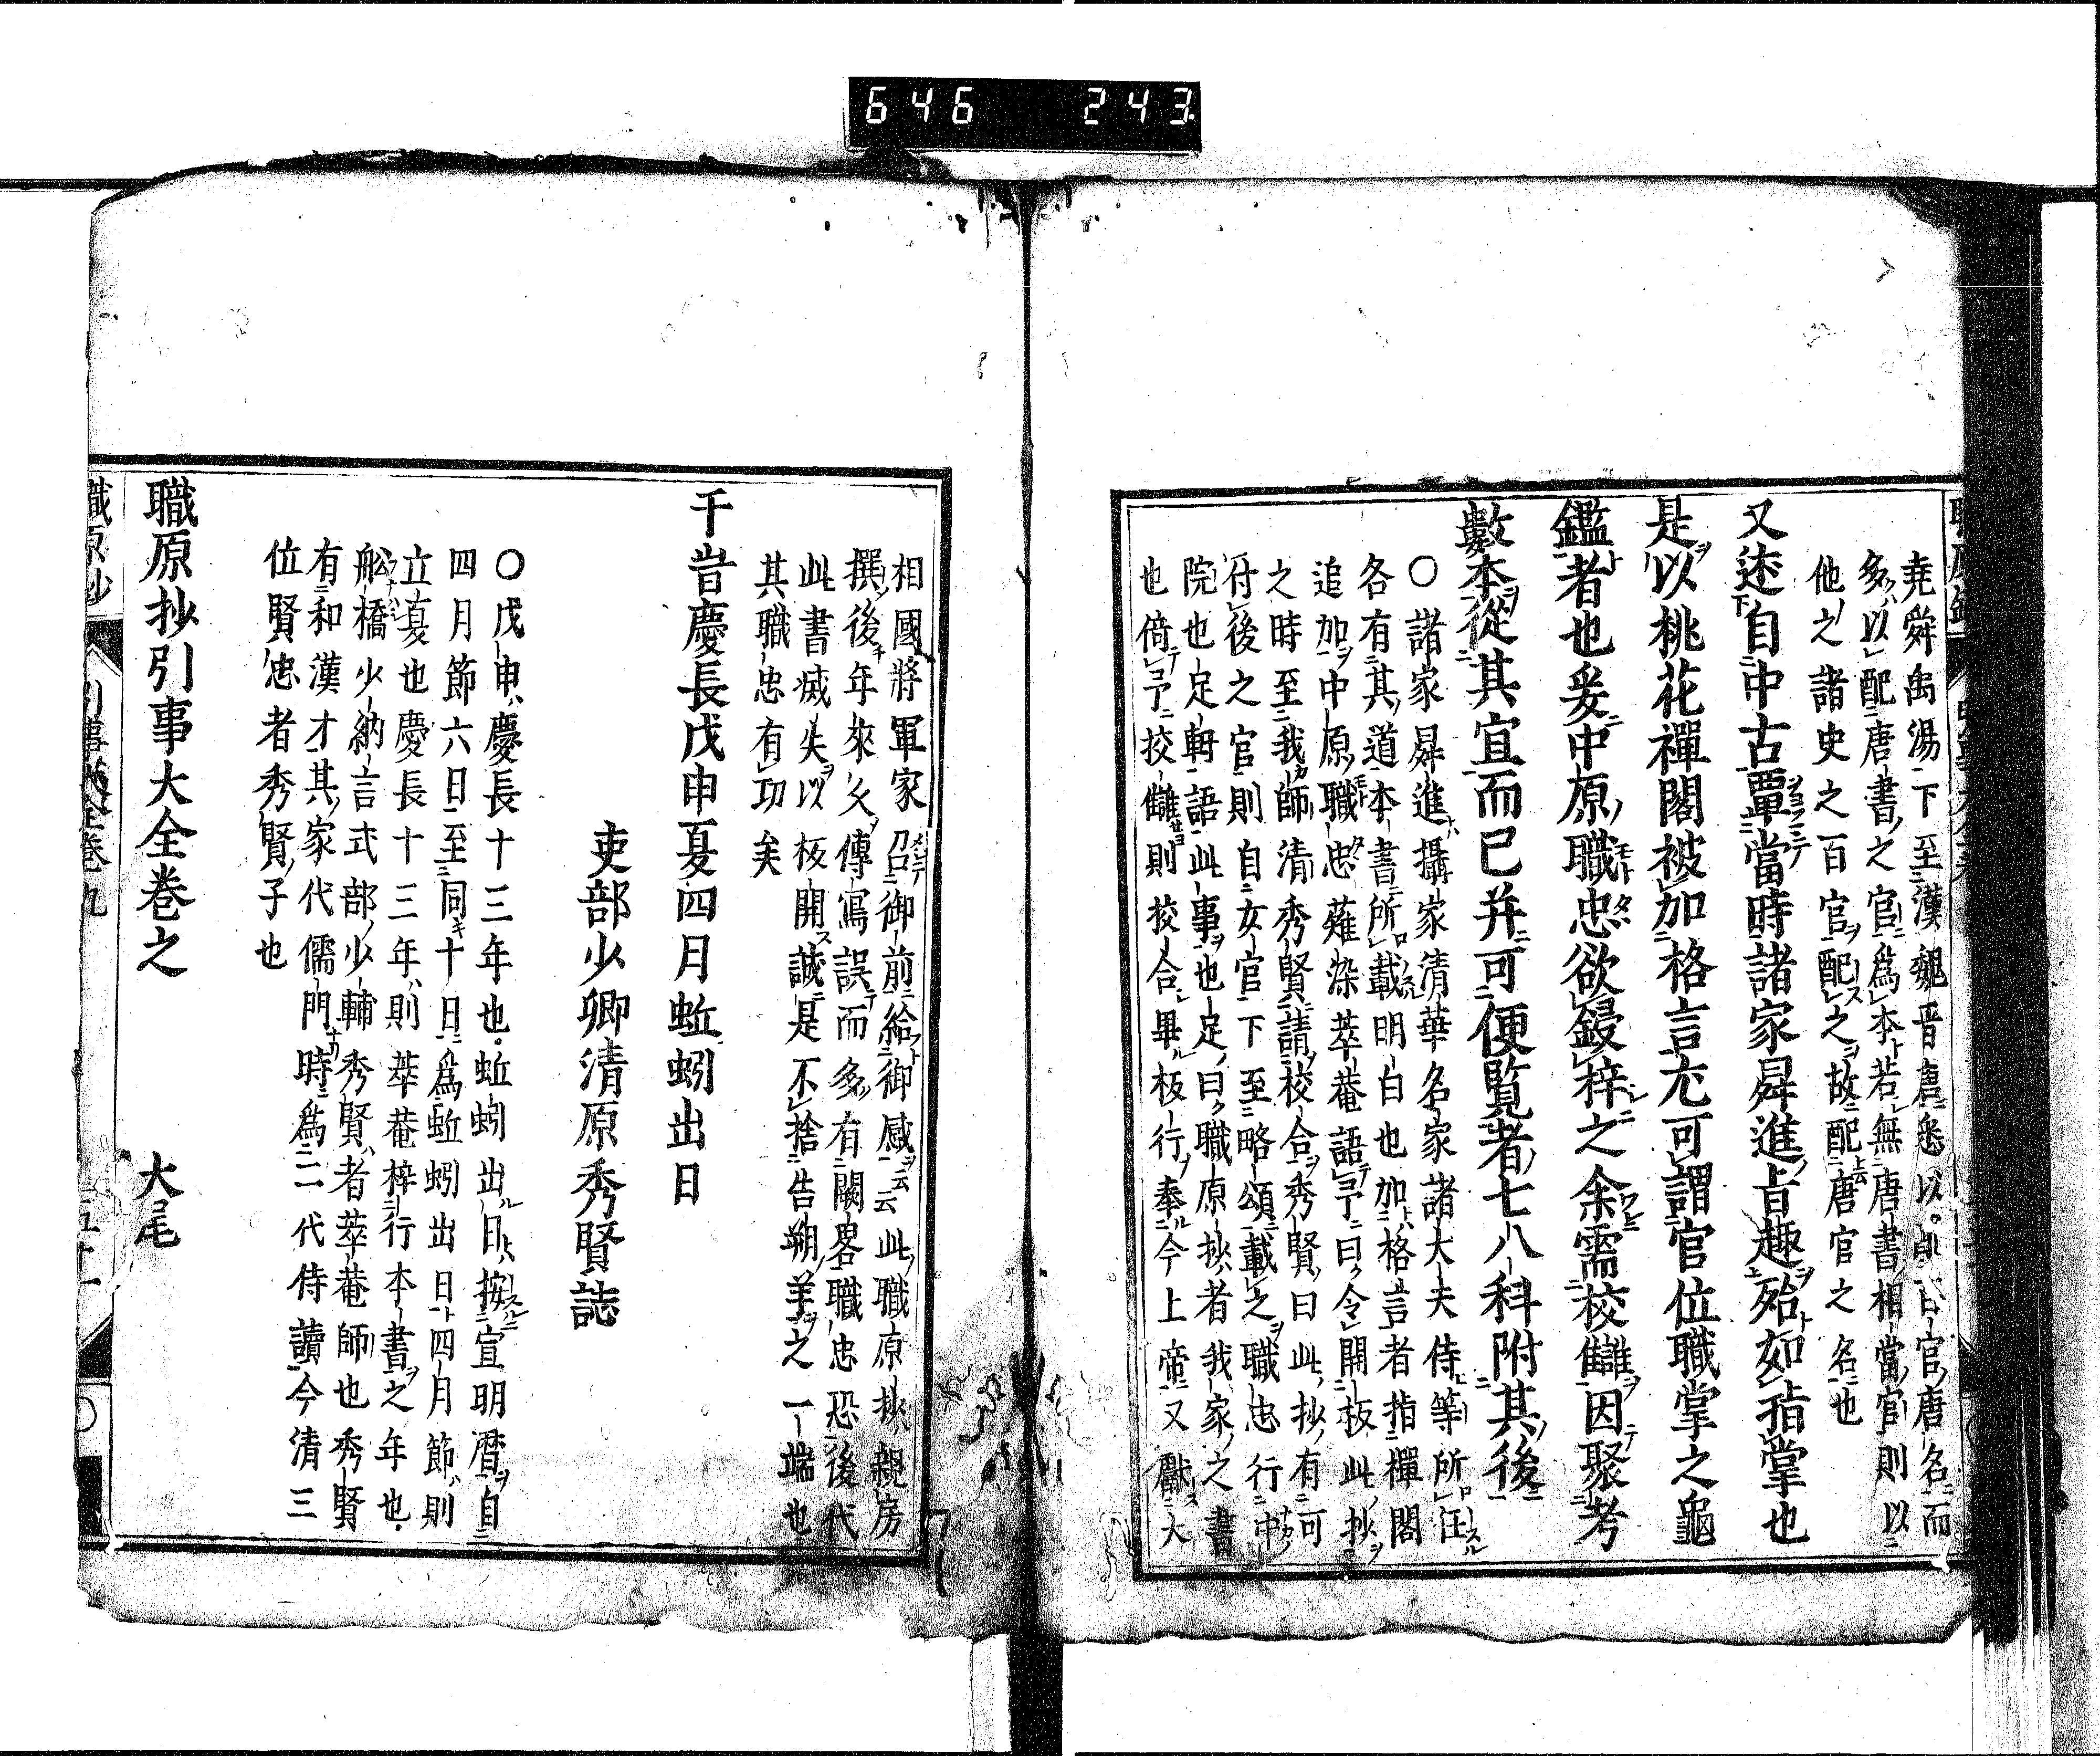 646 243
堯舜禹湯下至漢魏晋唐悉以百官唐名而
多以配唐書之官爲本若無唐書相當官則以
他之諸史之百官配之故配唐官之名也
又述自中古覃當時諸家昇進旨趣殆如指掌也
是以桃花禪閤被加格言尤可謂官位職掌之龜
鑑者也爰中原職忠欲鋟梓之余需校讎因聚考
數本從其宜而已并可便覧者七八科附其後
〇諸家昇進攝家清華名家諸大夫侍等所任
各有其道本書所載明白也加格言者指禪閤
追加中原職忠薙染萃菴語予曰令開板此抄
之時至我師清秀賢請校合秀賢曰此抄有可
付後之官則自女官下至略頌載之職忠行中
院也足軒語此事也足曰職原抄者我家之書
也倚予挍讎則挍合畢板行奉今上帝又獻大
相國將軍家召御前給御感云云此職原抄親房
撰後年來久傳寫誤而多有闕畧職忠恐後代
此書滅失以板開誠是不捨告朔羊之一端也
其職忠有功矣
千旹慶長戊申夏四月蚯蚓出日
吏部少卿清原秀賢誌
〇戊申慶長十三年也蚯蚓出日按宣明暦自
四月節六日至同十日爲蚯蚓出日四月節則
立夏也慶長十三年則萃菴梓行本書之年也
舩橋少納言式部少輔秀賢者萃菴師也秀賢
有和漢才其家代儒門時爲二代侍讀今清三
位賢忠者秀賢子也
職原抄引事大全巻之 大尾
職原抄 引事大全巻九 五十一